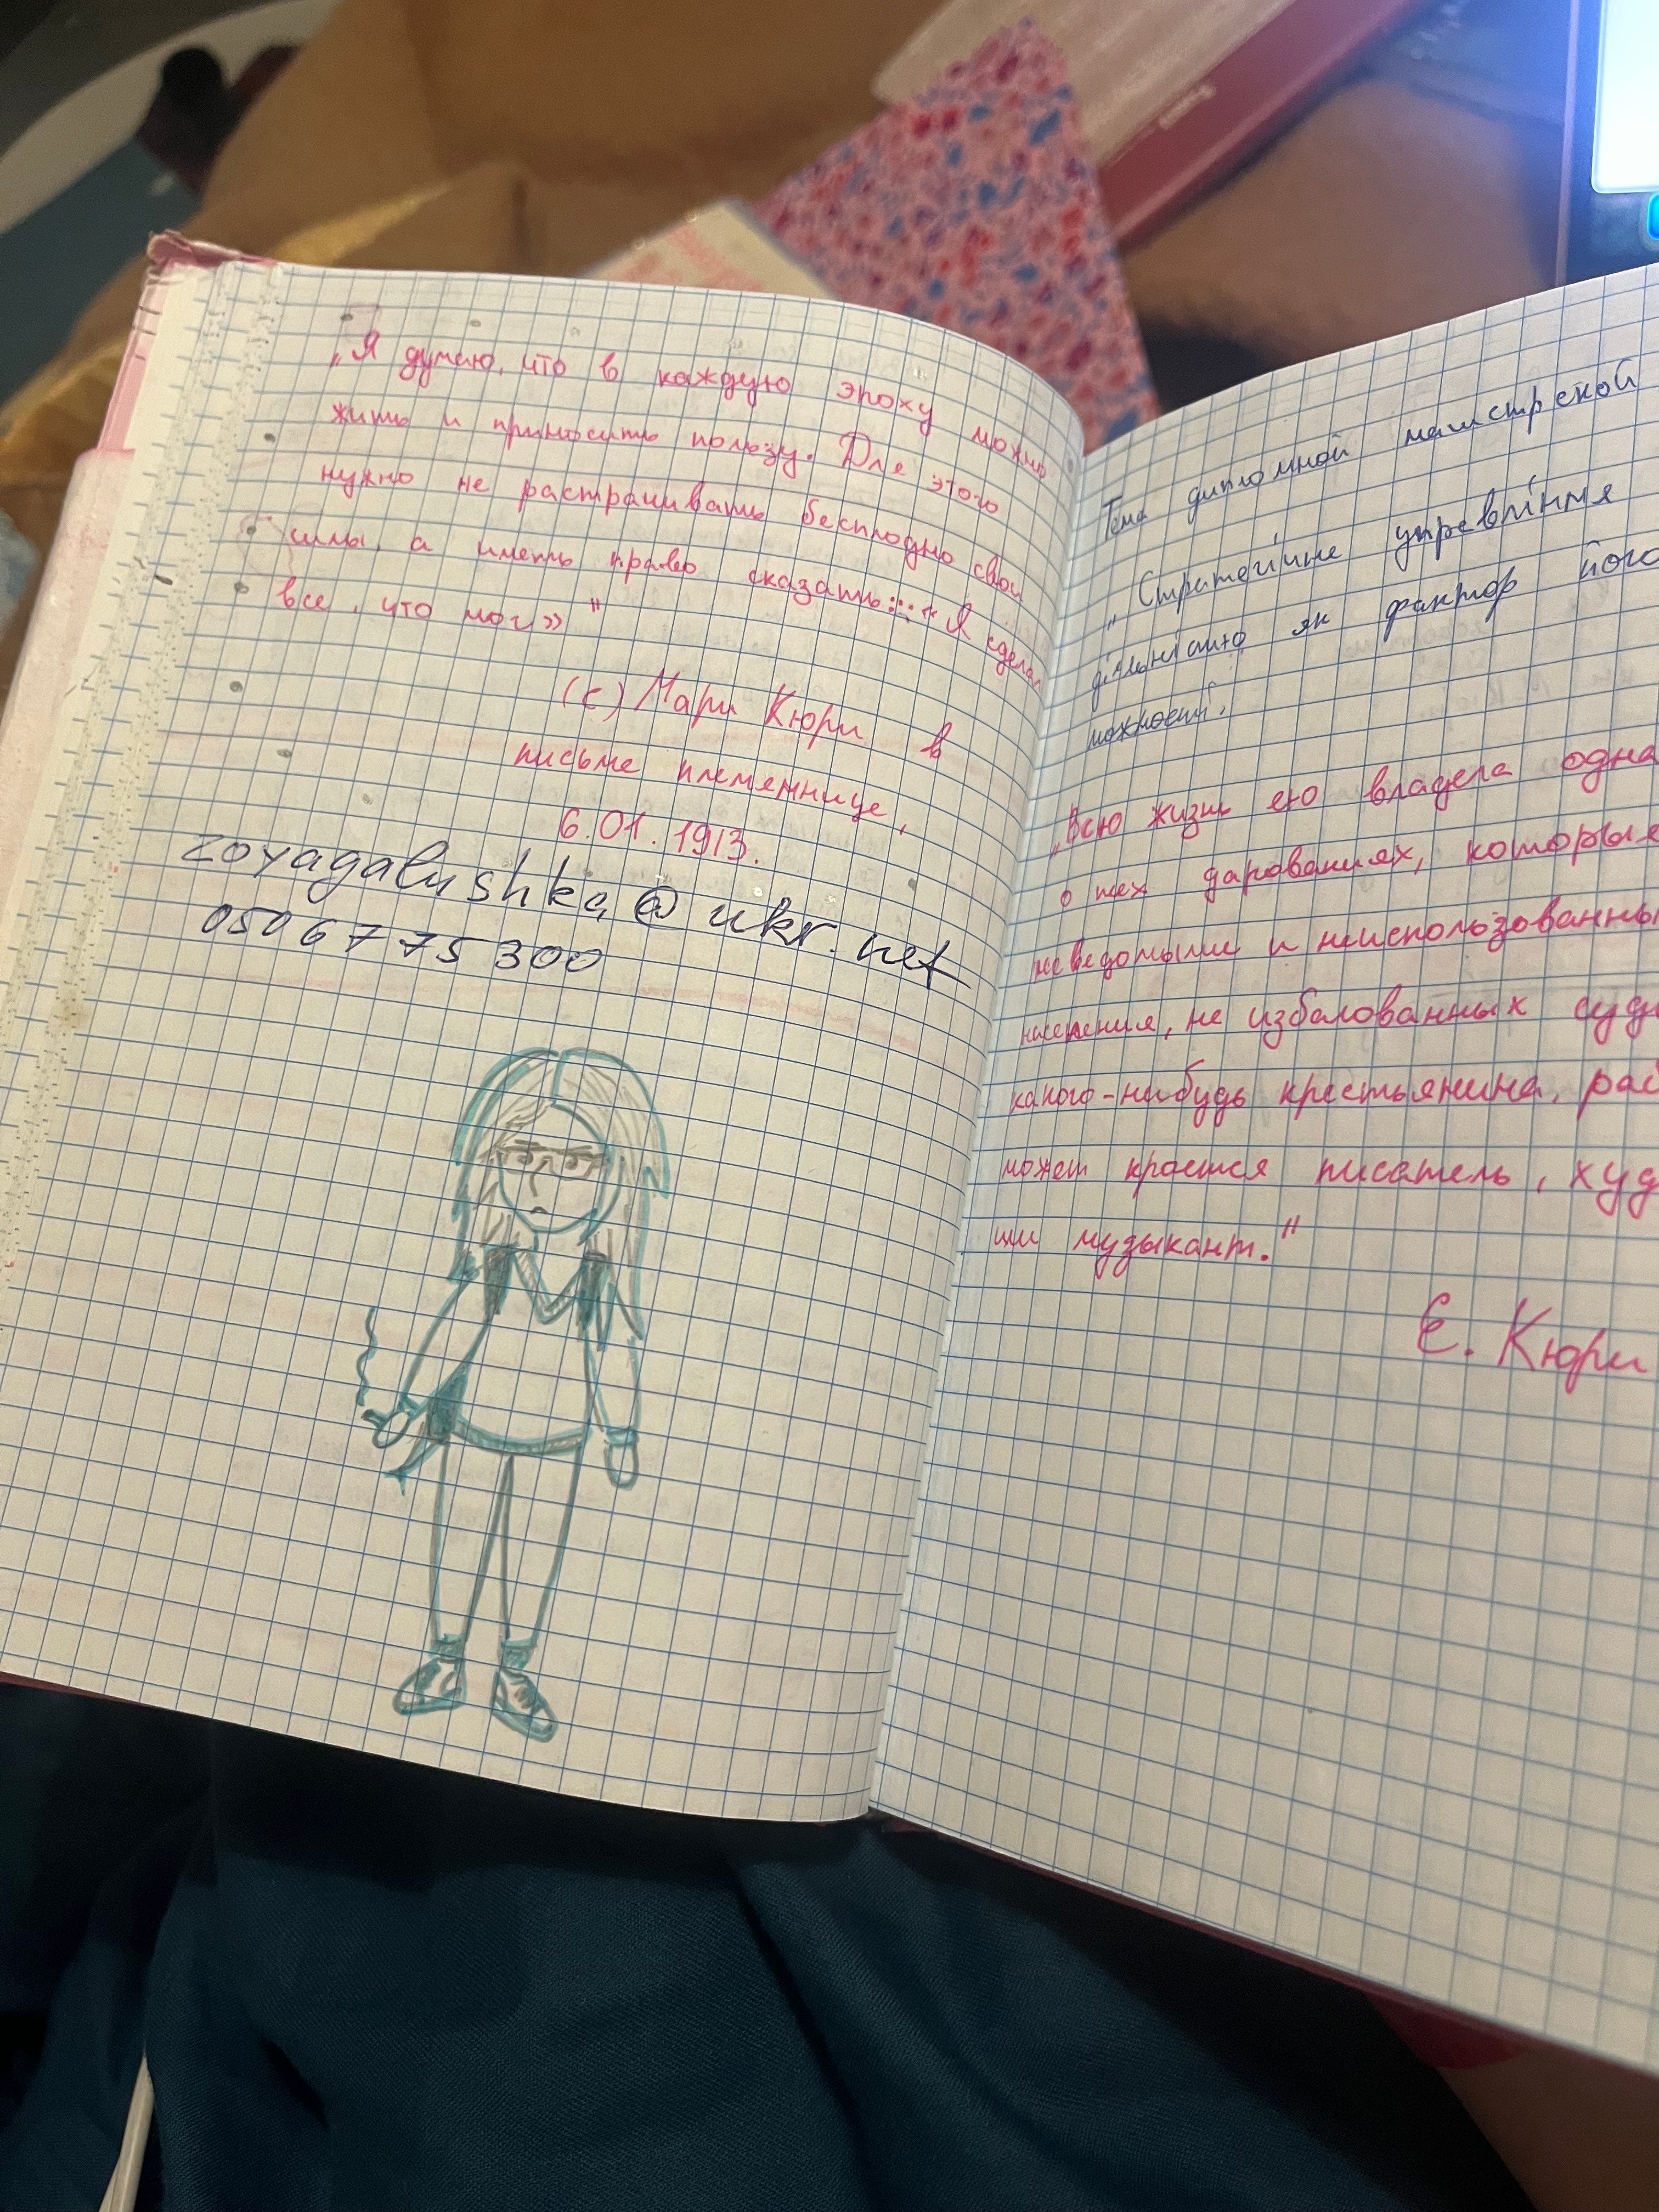 „Я думаю, что в каждую эпоху можно
жить и приносить пользу. Для этого
нужно не растрачивать бесплодно свои
силы, а иметь право сказать::: «Я сделал
все, что мог»"
(с) Мари Кюри в
письме племяннице,
6.01.1913.
zoyagalushka@ukr.net
0506775300
Тема дипломной магистрской
„Стратегічне управління
діяльністю як фактор його
„Всю жизнь ею владела одна
о тех дарованиях, которые
неведомыми и неиспользованны
населения, не избалованных суд
какого-нибудь крестьянина, раб
может кроется писатель, худ
или музыкант."
Е. Кюри